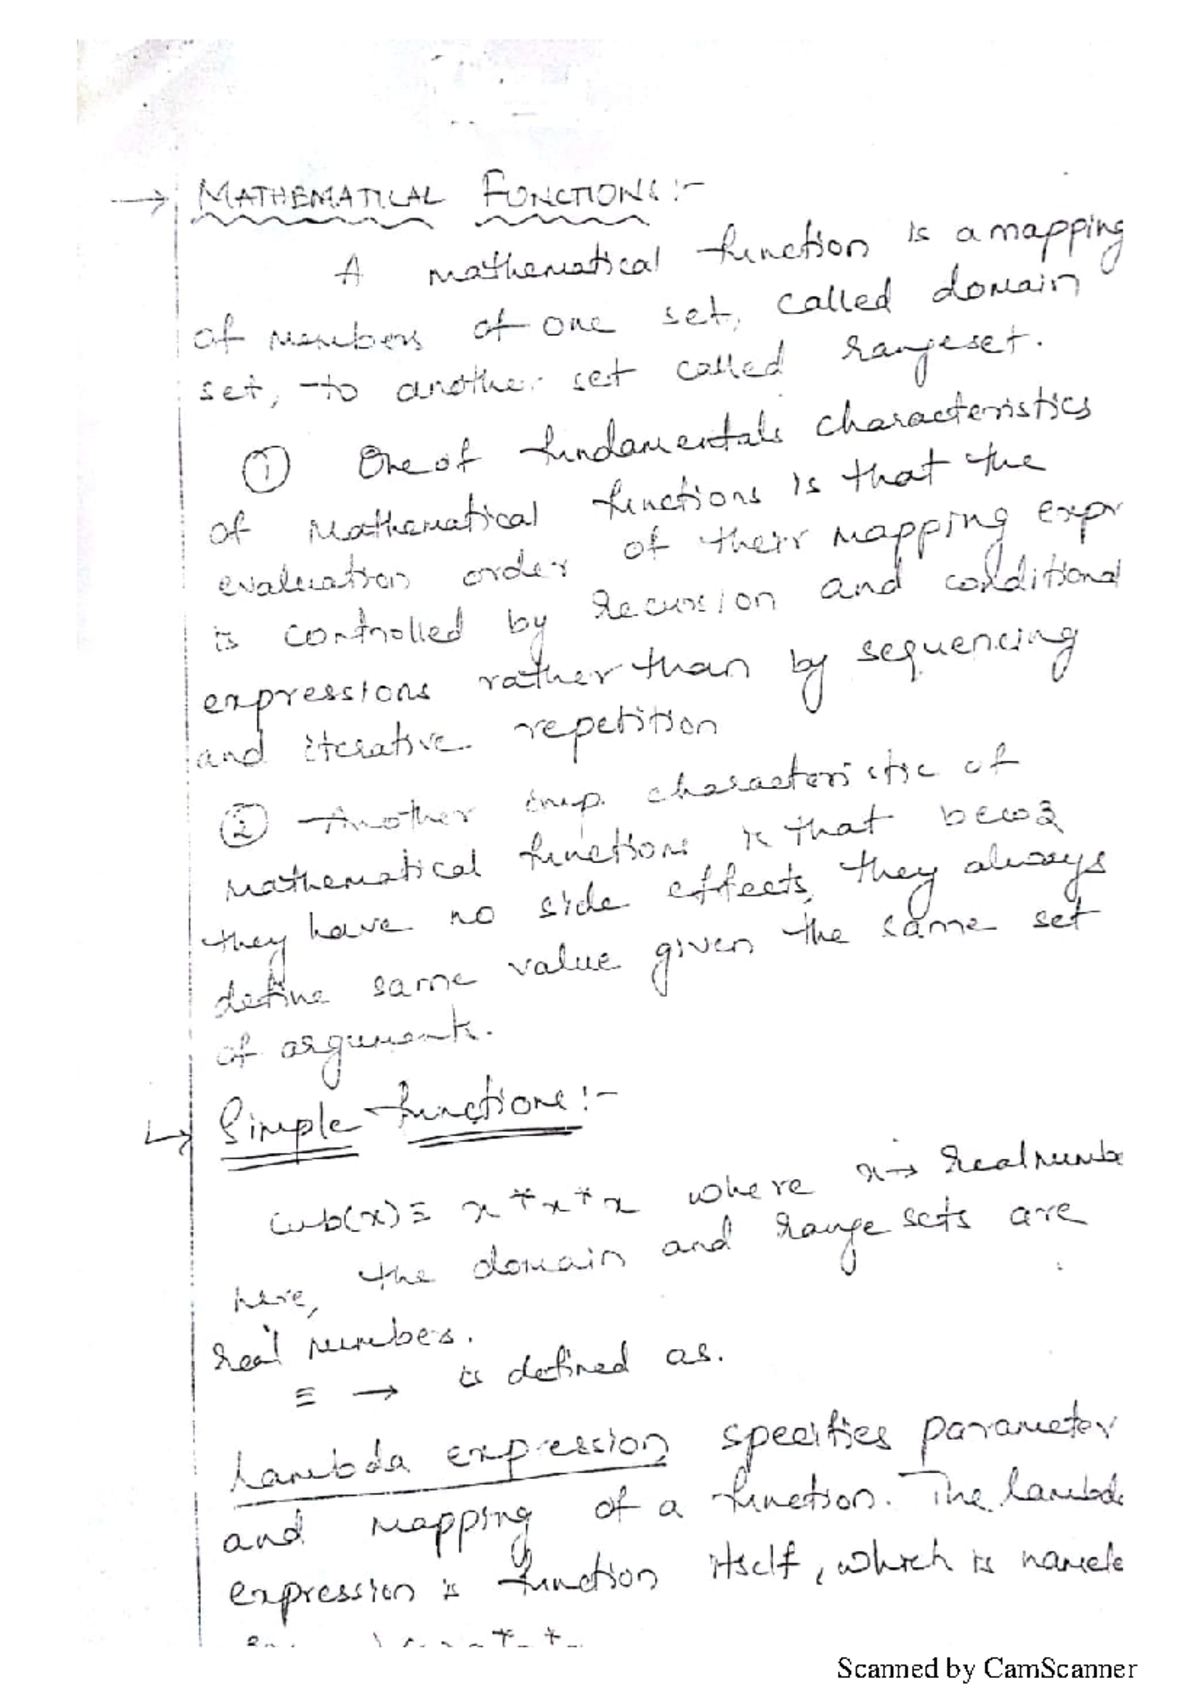 → MATHEMATICAL FUNCTIONS:-
A mathematical function is a mapping
of members of one set, called domain
set, to another set called rangeset.
① One of fundamentals characteristics
of Mathematical functions is that the
evaluation order of their mapping expr
is controlled by recursion and conditional
expressions rather than by sequencing
and iterative repetition
② Another imp. characteristic of
Mathematical functions is that becoz
they have no side effects, they always
define same value given the same set
of arguments.
↳ Simple functions:-
Cub(x) ≡ x * x * x where x → Real Numbe
here, the domain and range sets are
real numbers.
≡ → is defined as.
Lambda expression specifies parameter
and mapping of a function. The lambda
expression is function itself, which is namele